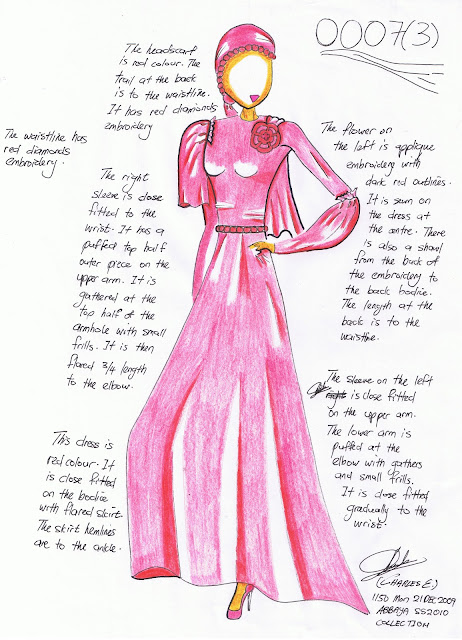 0007(3)
The headscarf
is red colour. The
trail at the back
is to the waistline.
It has red diamonds
embroidery
The waistline has
red diamonds
embroidery.
The right
sleeve is close
fitted to the
wrist. It has a
puffed top half
outer piece on the
upper arm. It is
gathered at the
top half of the
armhole with small
frills. It is then
flared 3/4 length
to the elbow.
This dress is
red colour. It
is close fitted
on the bodice
with flared skirt.
The skirt hemlines
are to the ankle.
The flower on
the left is applique
embroidery with
dark red outlines.
It is sewn on
the dress at
the centre. There
is also a shawl
from the back of
the embroidery to
the back bodice.
The length at the
back is to the
waistline.
The sleeve on the left
is close fitted
on the upper arm.
The lower arm is
puffed at the
elbow with gathers
and small frills.
It is close fitted
gradually to the
wrist.
(CHARLES E.)
1150 Mon 21 DEC 2009
ABBAYA SS2010
COLLECTION